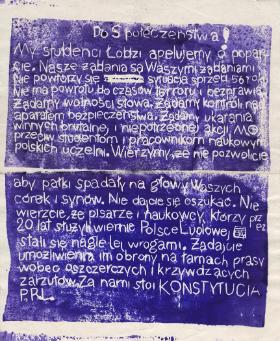 Do Społeczeństwa!
My studenci Łodzi apelujemy o popar
cie. Nasze żądania są Waszymi żądaniami
Nie powtórzy się sytuacja sprzed 56 rok
Nie ma powrotu do czasów terroru i bezprawia
Żądamy wolności słowa. Żądamy kontroli nad
aparatem bezpieczeństwa. Żądamy ukarania
winnych brutalnej i niepotrzebnej akcji MO
przeciw studentom i pracownikom naukowym
polskich uczelni. Wierzymy, że nie pozwolicie
aby pałki spadały na głowy Waszych
córek i synów. Nie dajcie się oszukać. Nie
wierzcie, że pisarze i naukowcy, którzy prz
20 lat służyli wiernie Polsce Ludowej ez
stali się nagle jej wrogami. Żądajcie
umożliwienia im obrony na łamach prasy
wobec oszczerczych i krzywdzących
zarzutów. Za nami stoi KONSTYTUCJA
PRL